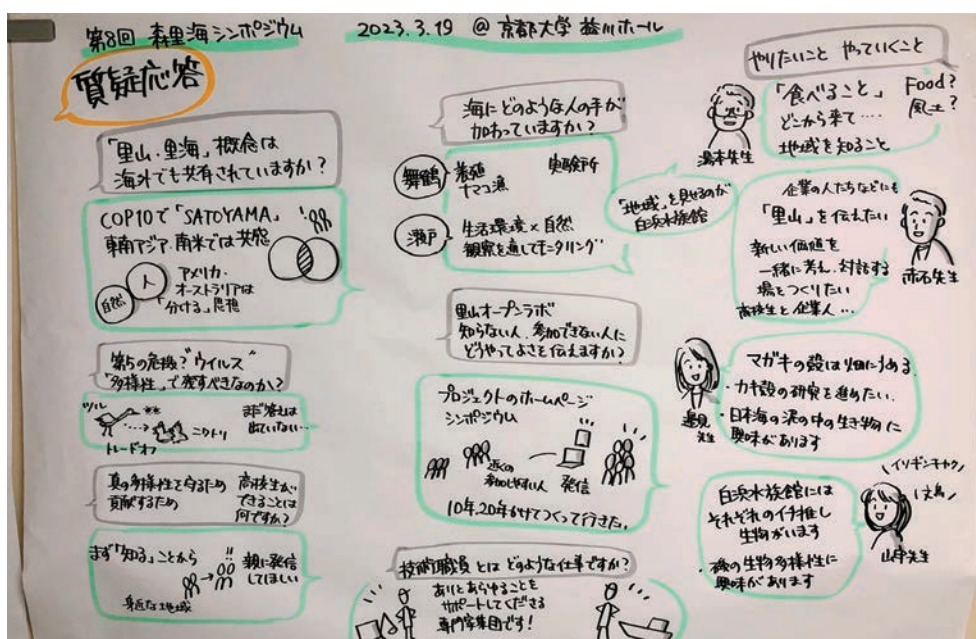 第8回 森里海シンポジウム
2023.3.19 @ 京都大学 益川ホール
質疑応答
「里山・里海」概念は
海外でも共有されていますか?
COP10で「SATOYAMA」
東南アジア・南米では共感
人
自然
アメリカ・
オーストラリアは
「分ける」思想
第5の危機?"ウイルス"
"多様性"で残すべきなのか?
ツル
ニワトリ
トレードオフ
まだ答えは
出ていない…
真の多様性を守るため
貢献するため
高校生が
できることは
何ですか?
まず「知る」ことから
身近な地域
親に発信
してほしい
海にどのような人の手が
加わっていますか?
舞鶴
養殖
ナマコ漁
実験所
瀬戸
生活環境×自然
観察を通してモニタリング
「地域」を見せるのが
白浜水族館
里山オープンラボ
知らない人、参加できない人に
どうやってよさを伝えますか?
プロジェクトのホームページ
シンポジウム
近くの
参加しやすい人
発信
10年、20年かけてつくって行きたい。
技術職員とは どのような仕事ですか?
ありとあらゆることを
サポートしてくださる
専門家集団です!
やりたいこと やっていくこと
「食べること」
どこから来て……
地域を知ること
Food?
風土?
湯本先生
企業の人たちなどにも
「里山」を伝えたい
新しい価値を
一緒に考え、対話する
場をつくりたい
高校生と企業人…
赤石先生
マガキの殻は畑にうめる
・カキ殻の研究を進めたい。
・日本海の泥の中の生き物に
興味があります
邉見
先生
白浜水族館には
それぞれのイチ推し
生物がいます
・磯の生物多様性に
興味があります
イソギンチャク
山守先生